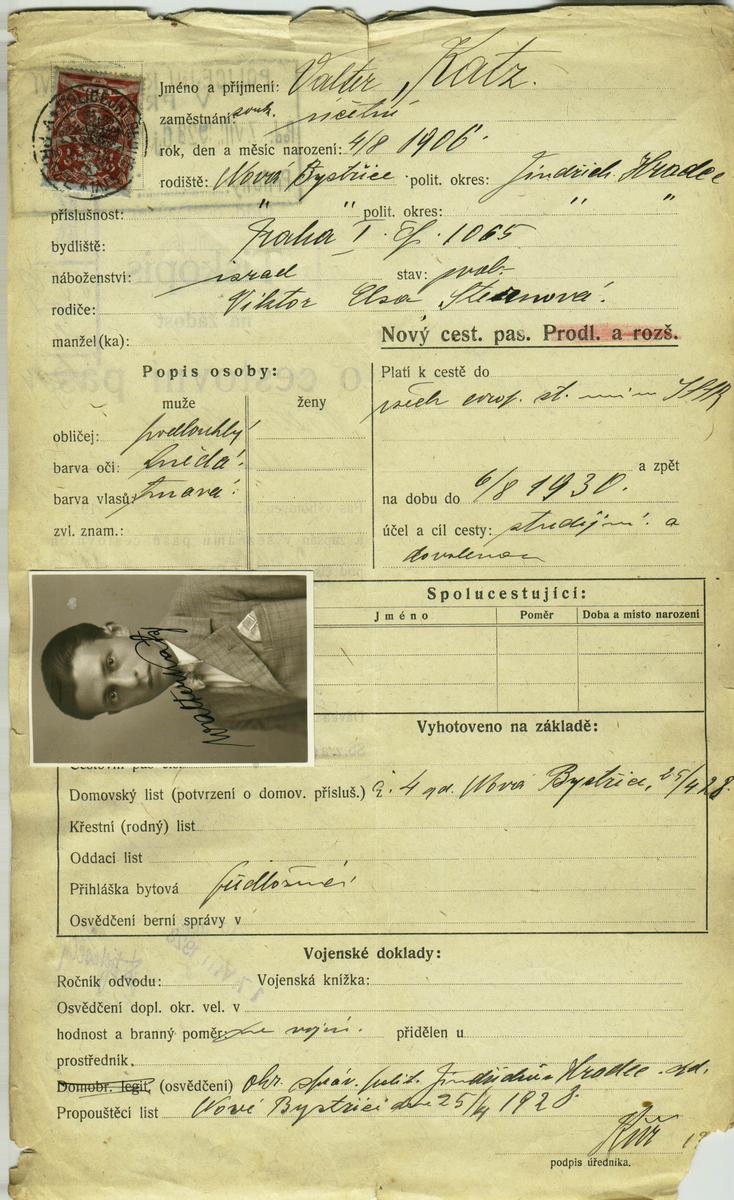 Jméno a příjmení: Valter Katz.
zaměstnání: souk. účetní
rok, den a měsíc narození: 4/8 1906
rodiště: Nová Bystřice polit. okres: Jindřich. Hradec
příslušnost: " " polit. okres: " "
bydliště: Praha I. čp. 1065
náboženství: israel stav: svob.
rodiče: Viktor Elsa Steinová.
manžel(ka):
Nový cest. pas. Prodl. a rozš.
Popis osoby:
muže ženy
obličej: podlouhlý
barva očí: hnědá
barva vlasů: tmavá
zvl. znam.:
Platí k cestě do
všech evrop. st. mimo SSSR
a zpět
na dobu do 6/8 1930.
účel a cíl cesty: studijní a
dovolenou
Spolucestující:
Jméno Poměr Doba a místo narození
Walter Katz
Vyhotoveno na základě:
Domovský list (potvrzení o domov. přísluš.) č. 4 Nová Bystřice, 25/4 28.
Křestní (rodný) list
Oddací list
Přihláška bytová předložena
Osvědčení berní správy v
Vojenské doklady:
Ročník odvodu: Vojenská knížka:
Osvědčení dopl. okr. vel. v
hodnost a branný poměr: ne vojín. přidělen u
prostředník.
Domobr. legit. (osvědčení) okr. správ. polit. Jindřichův Hradec
Propouštěcí list Nové Bystřici dne 25/4 1928.
podpis úředníka.